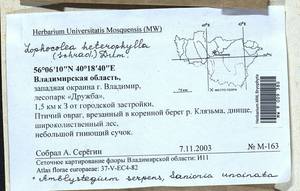 Herbarium Universitatis Mosquensis (MW)
Lophocolea heterophylla
(Schrad.) Dum.
56°06'10"N 40°18'40"E
Владимирская область,
западная окраина г. Владимир,
лесопарк «Дружба»,
1,5 км к З от городской застройки,
Птичий овраг, врезанный в коренной берег р. Клязьма, днище,
широколиственный лес,
небольшой гниющий сучок.
Собрал А. Серёгин 7.11.2003 № М-163
Сеточное картирование флоры Владимирской области: И11
Atlas florae europaeae: 37-V-EC4-82
+ Amblystegium serpens, Sanionia uncinata